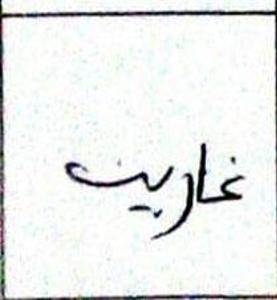 غاريب